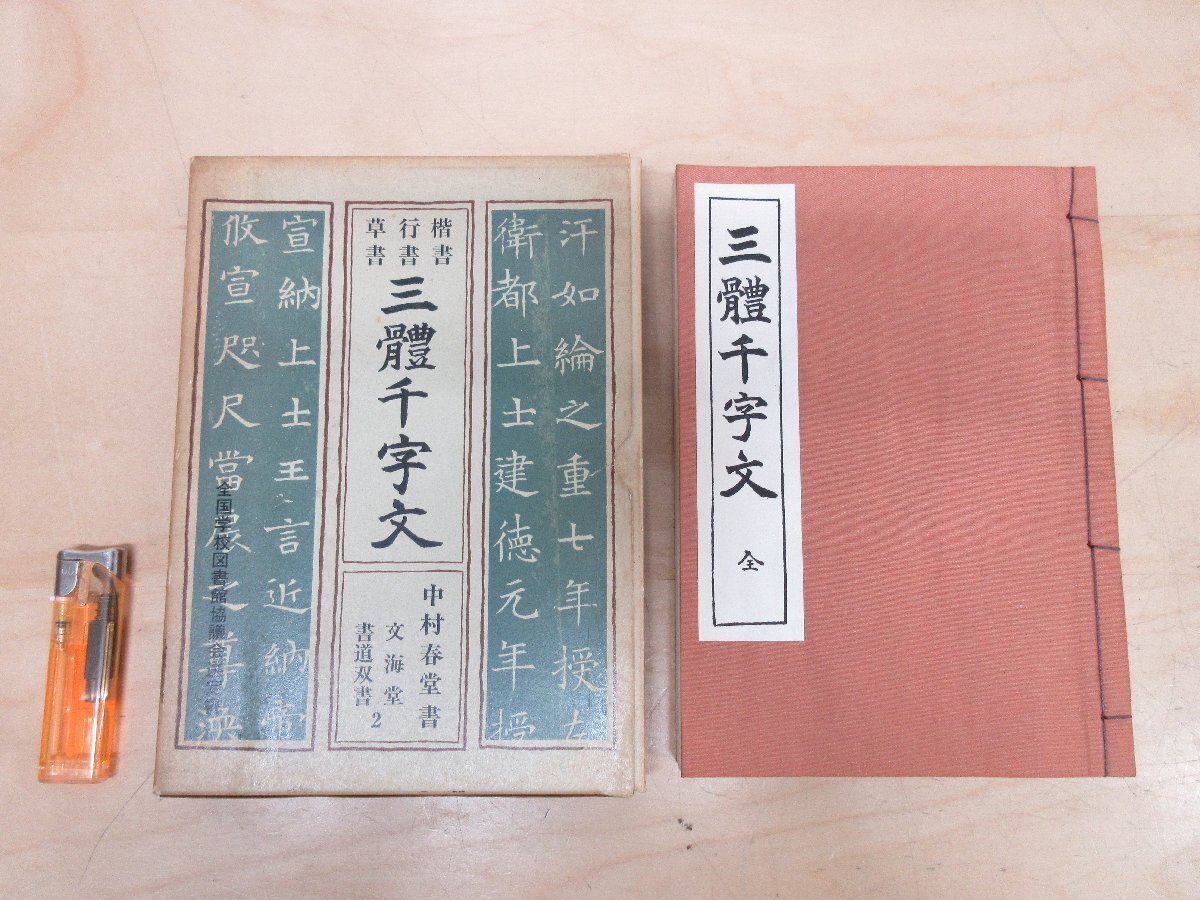 汗如綸之重七年授左
衛都上士建徳元年授
楷書
行書
草書
三體千字文
中村春堂書
文海堂
書道双書2
宣納上士王言近納
攸宣咫尺當扆之尊
全国学校図書館協議会選定
三體千字文
全